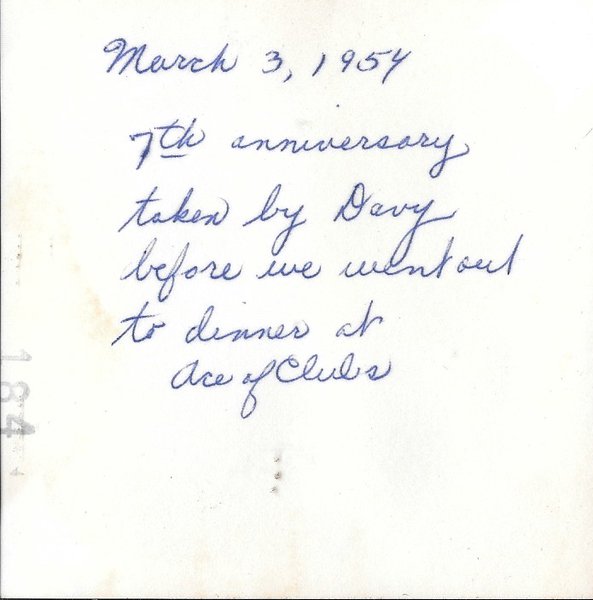 March 3, 1954
7th anniversary
taken by Davy
before we went out
to dinner at
Ace of Clubs
184